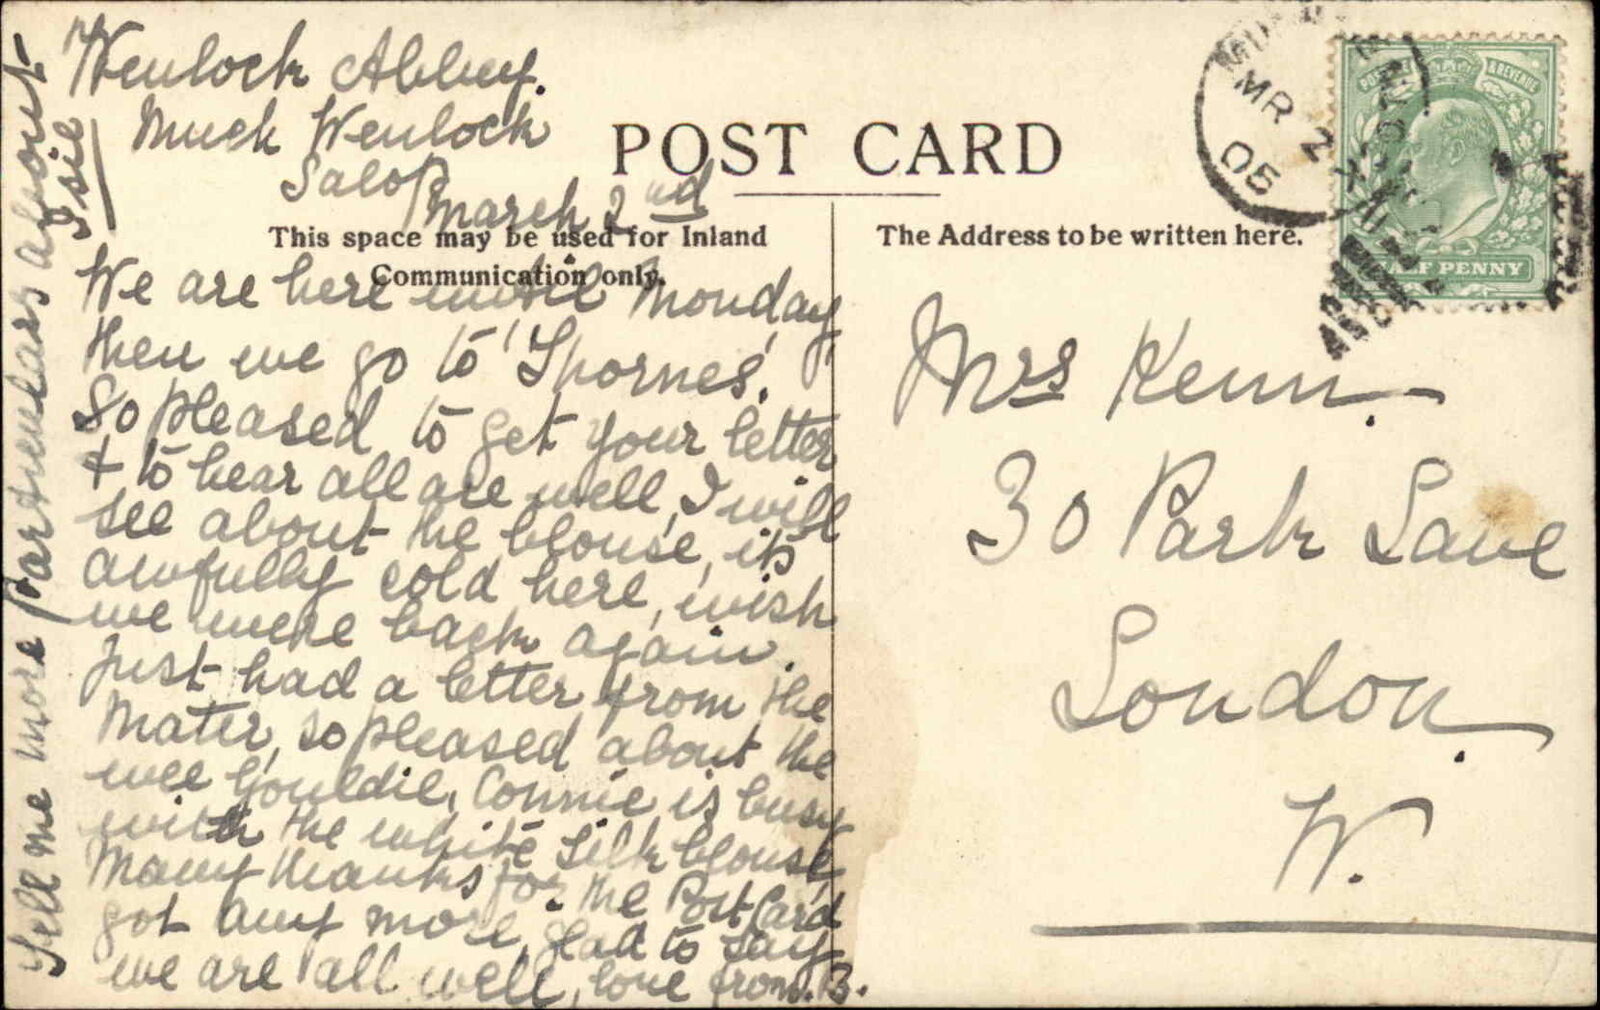 Wenlock Abbey.
Much Wenlock
Salop
March 2nd
POST CARD
This space may be used for Inland
Communication only.
We are here until Monday,
then we go to 'Thornes'.
So pleased to get your letter
& to hear all are well, I will
see about the blouse, its
awfully cold here, wish
we were back again.
Just had a letter from the
Mater, so pleased about the
wee Gouldie, Connie is busy
with the white silk blouse,
Many thanks for the Post Card
got any more, glad to say
we are all well, love from. B.
Tell me more particulars about
The Address to be written here.
Mrs Kenn.
30 Park Lane
London.
W.
MR 2
05
POSTAGE & REVENUE
HALF PENNY